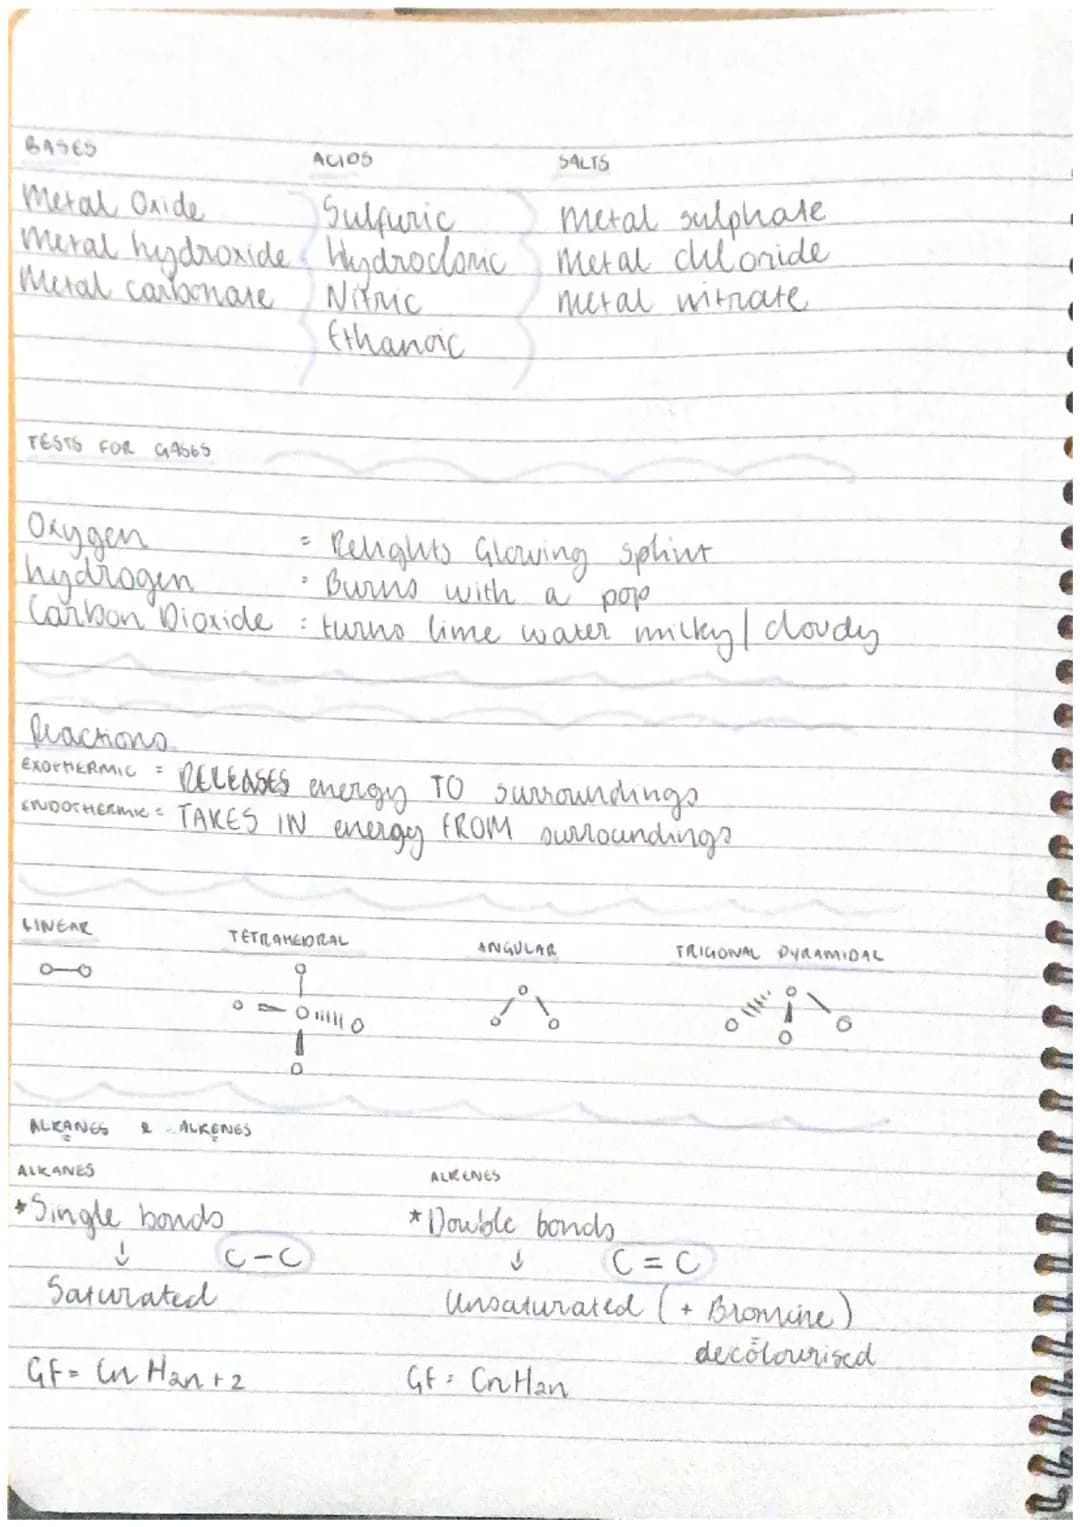 BASES ACIDS SALTS
Metal Oxide Sulfuric Metal sulphate
Metal hydroxide Hydrocloric Metal chloride
Metal carbonate Nitric Metal nitrate
Ethanoic
TESTS FOR GASES
Oxygen = Relights Glowing splint
hydrogen = Burns with a pop
Carbon Dioxide = turns lime water milky/cloudy
Reactions
EXOTHERMIC = RELEASES energy TO surroundings
ENDOTHERMIC = TAKES IN energy FROM surroundings
LINEAR TETRAHEDRAL ANGULAR TRIGONAL PYRAMIDAL
ALKANES & ALKENES
ALKANES ALKENES
*Single bonds *Double bonds
↓ C-C ↓ C=C
Saturated Unsaturated (+ Bromine)
decolourised
GF= CnH2n+2 GF= CnH2n